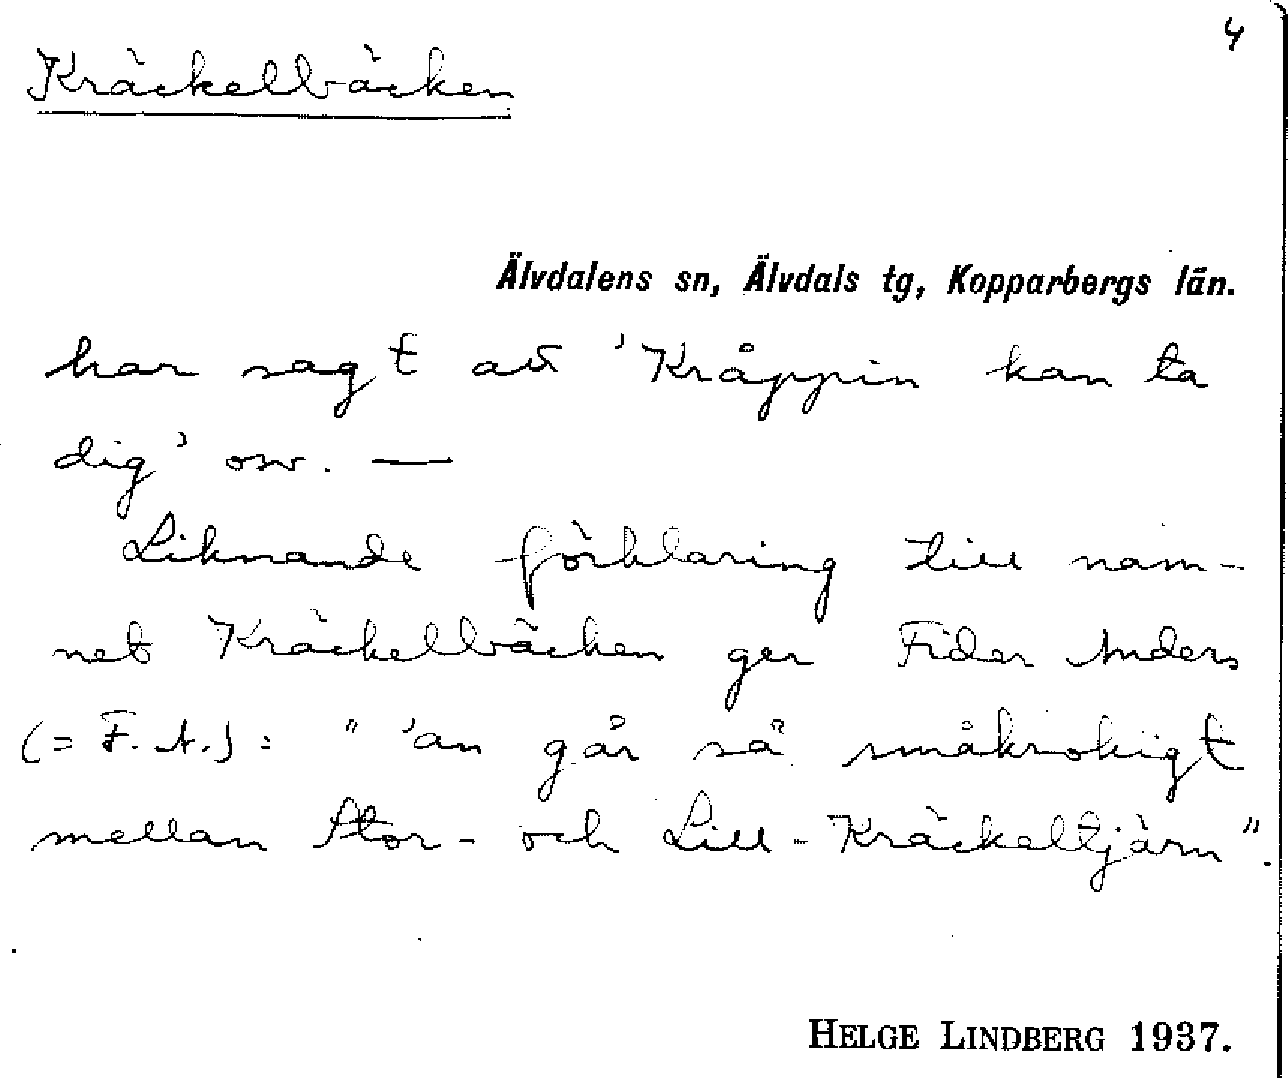 4
Kräckelbäcken
Älvdalens sn, Älvdals tg, Kopparbergs län.
har sagt att 'Kråppin kan ta
dig' osv. —
Liknande förklaring till nam-
net Kräckelbäcken ger Fider Anders
(= F. A.): " 'an går så småkrokigt
mellan Stor- och Lill-Kräckeltjärn".
HELGE LINDBERG 1937.